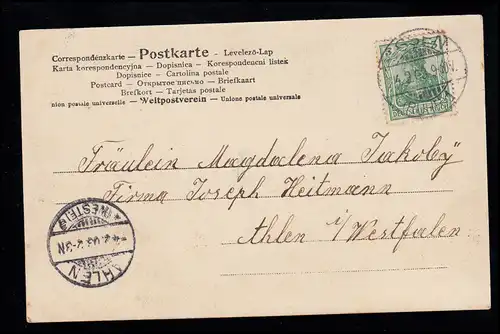 Correspondenzkarte – Postkarte – Levelezö-Lap
Karta korespondencyjna – Dopisnica – Korespondenční listek
Dopisnice – Cartolina postale
Postcard – Открытое письмо – Briefkaart
Brefkort – Tarjetas postale
nion postale universelle – Weltpostverein – Unione postale universale
Fräulein Magdalena Jakoby
Firma Joseph Heitmann
Ahlen i/Westfalen
AHLEN
(WESTF.)